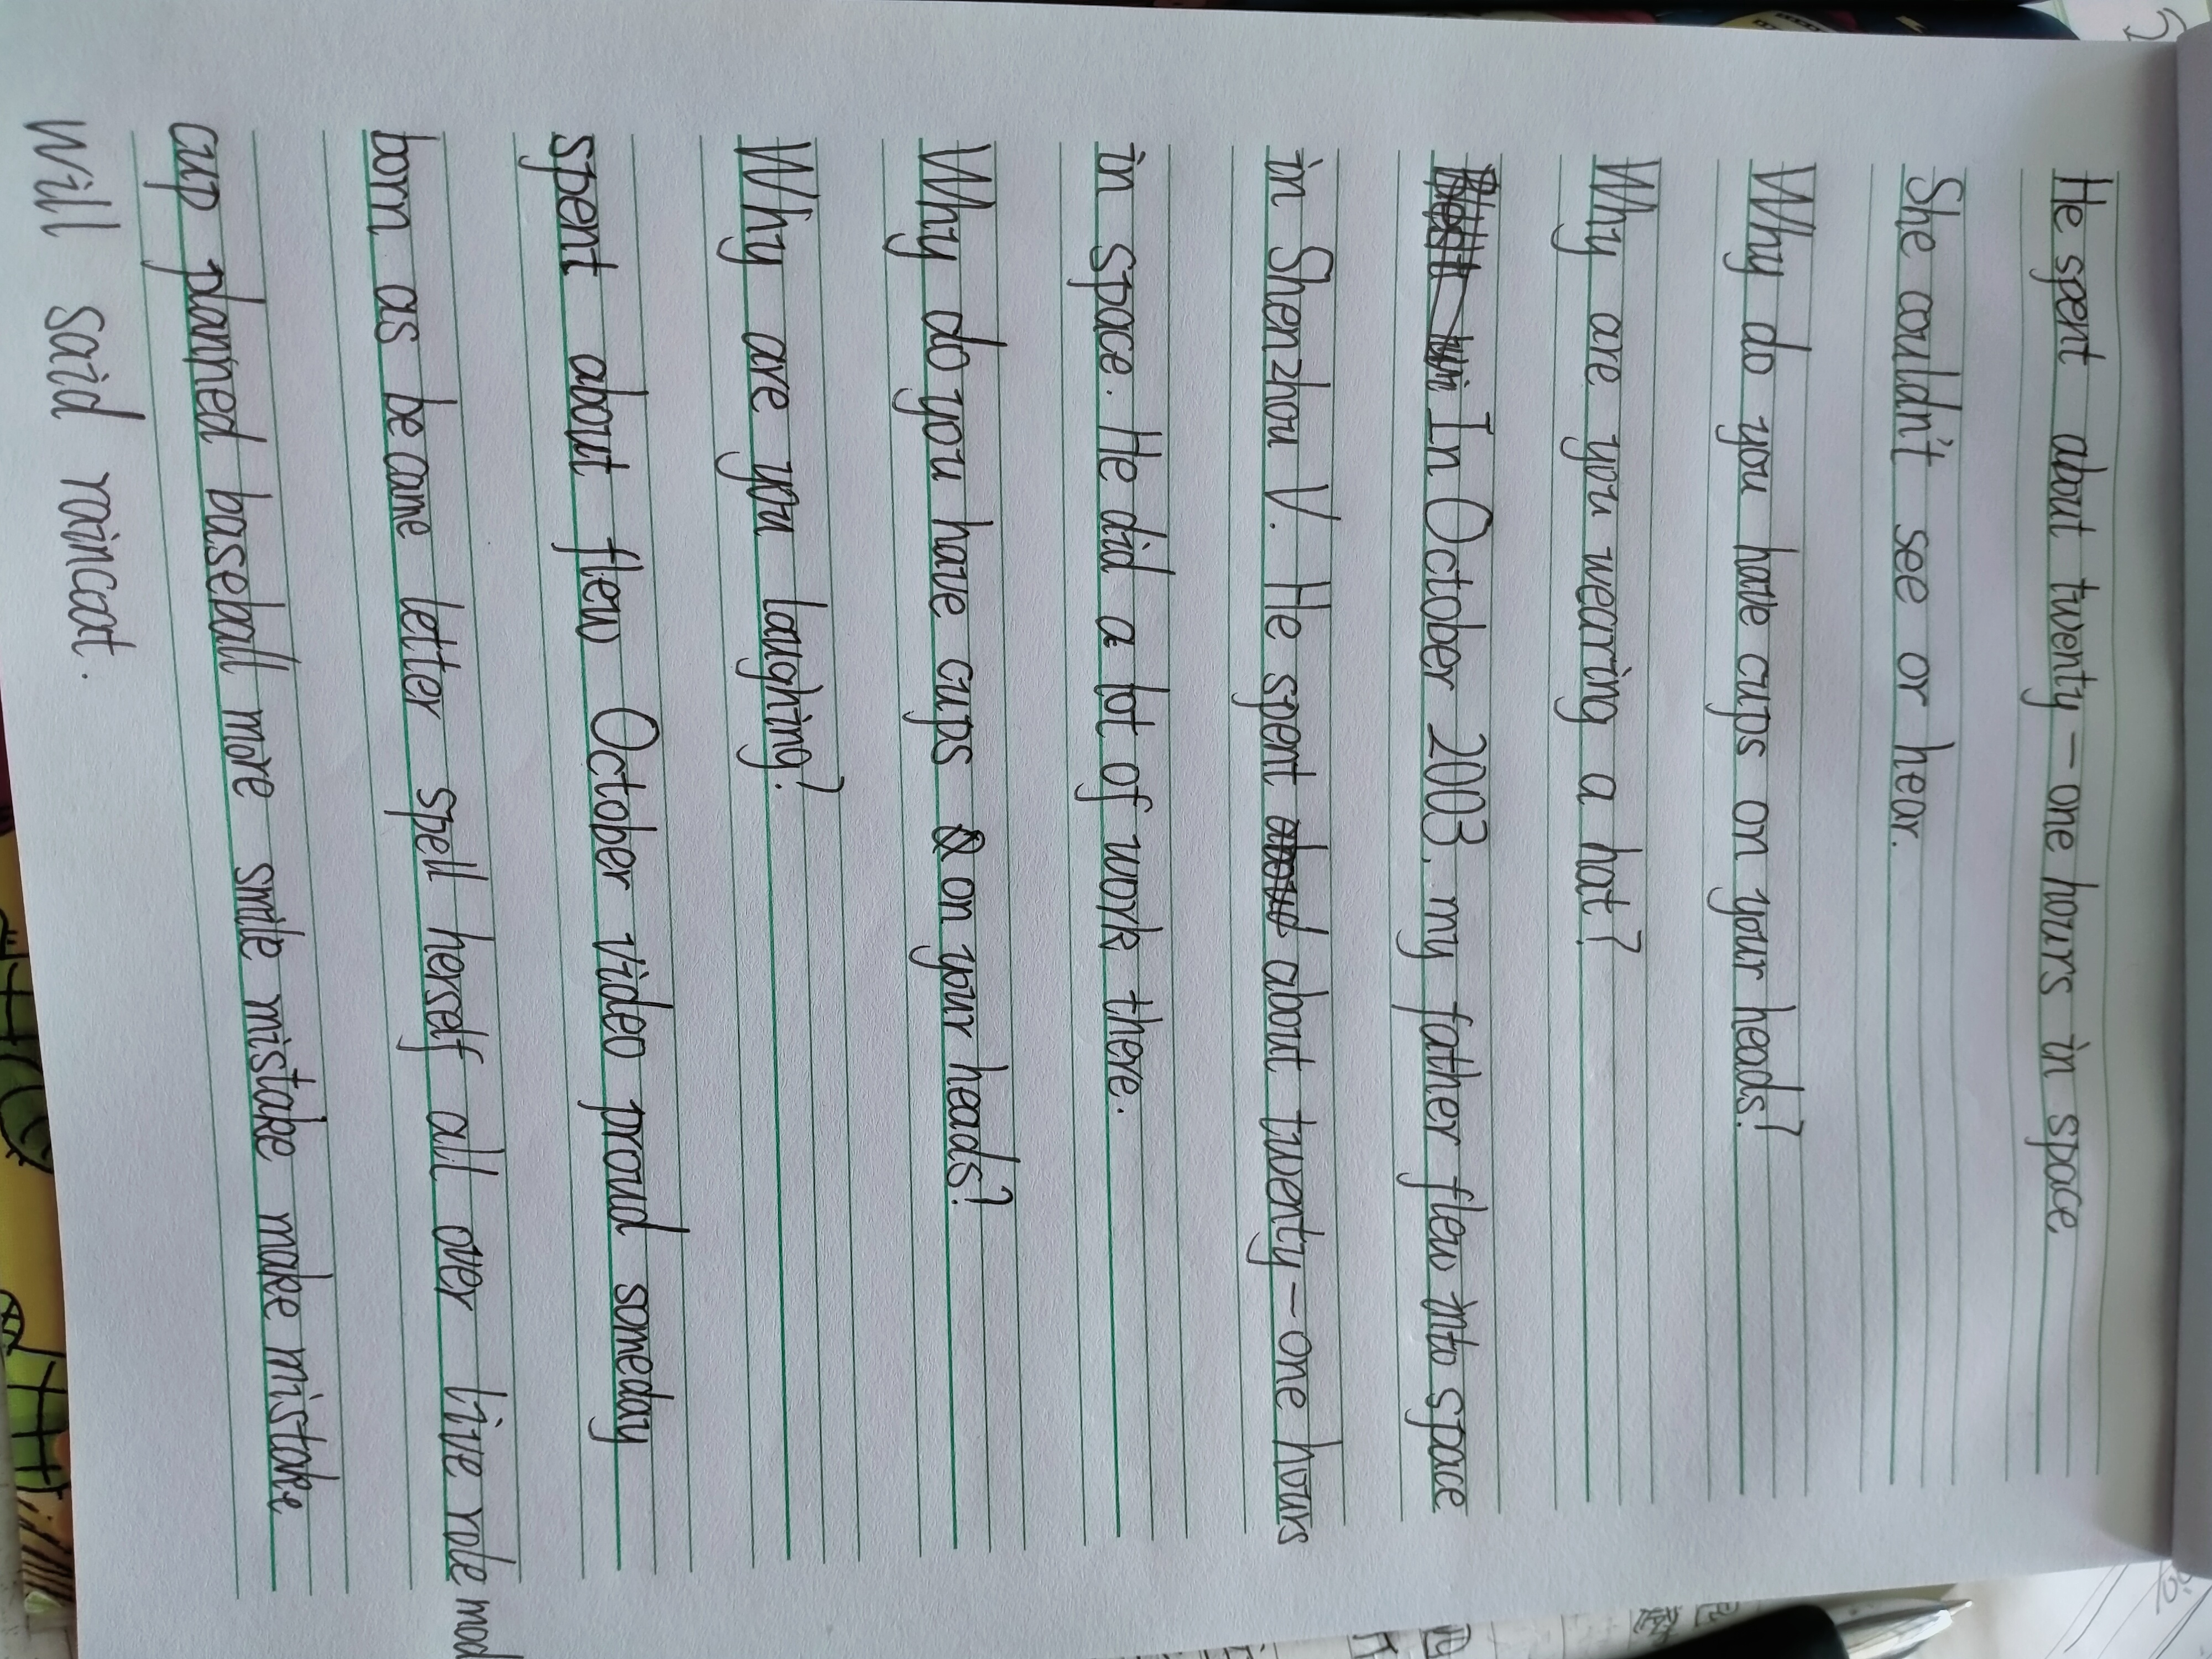 He spent about twenty-one hours in space
She couldn't see or hear.
Why do you have cups on your heads?
Why are you wearing a hat?
In October 2003. my father flew into space
in Shenzhou V. He spent about twenty-one hours
in space. He did a lot of work there.
Why do you have cups on your heads?
Why are you laughing?
spent about flew October video proud someday
born as became letter spell herself all over live role mod
cup planned baseball more smile mistake make mistake
will said raincat.